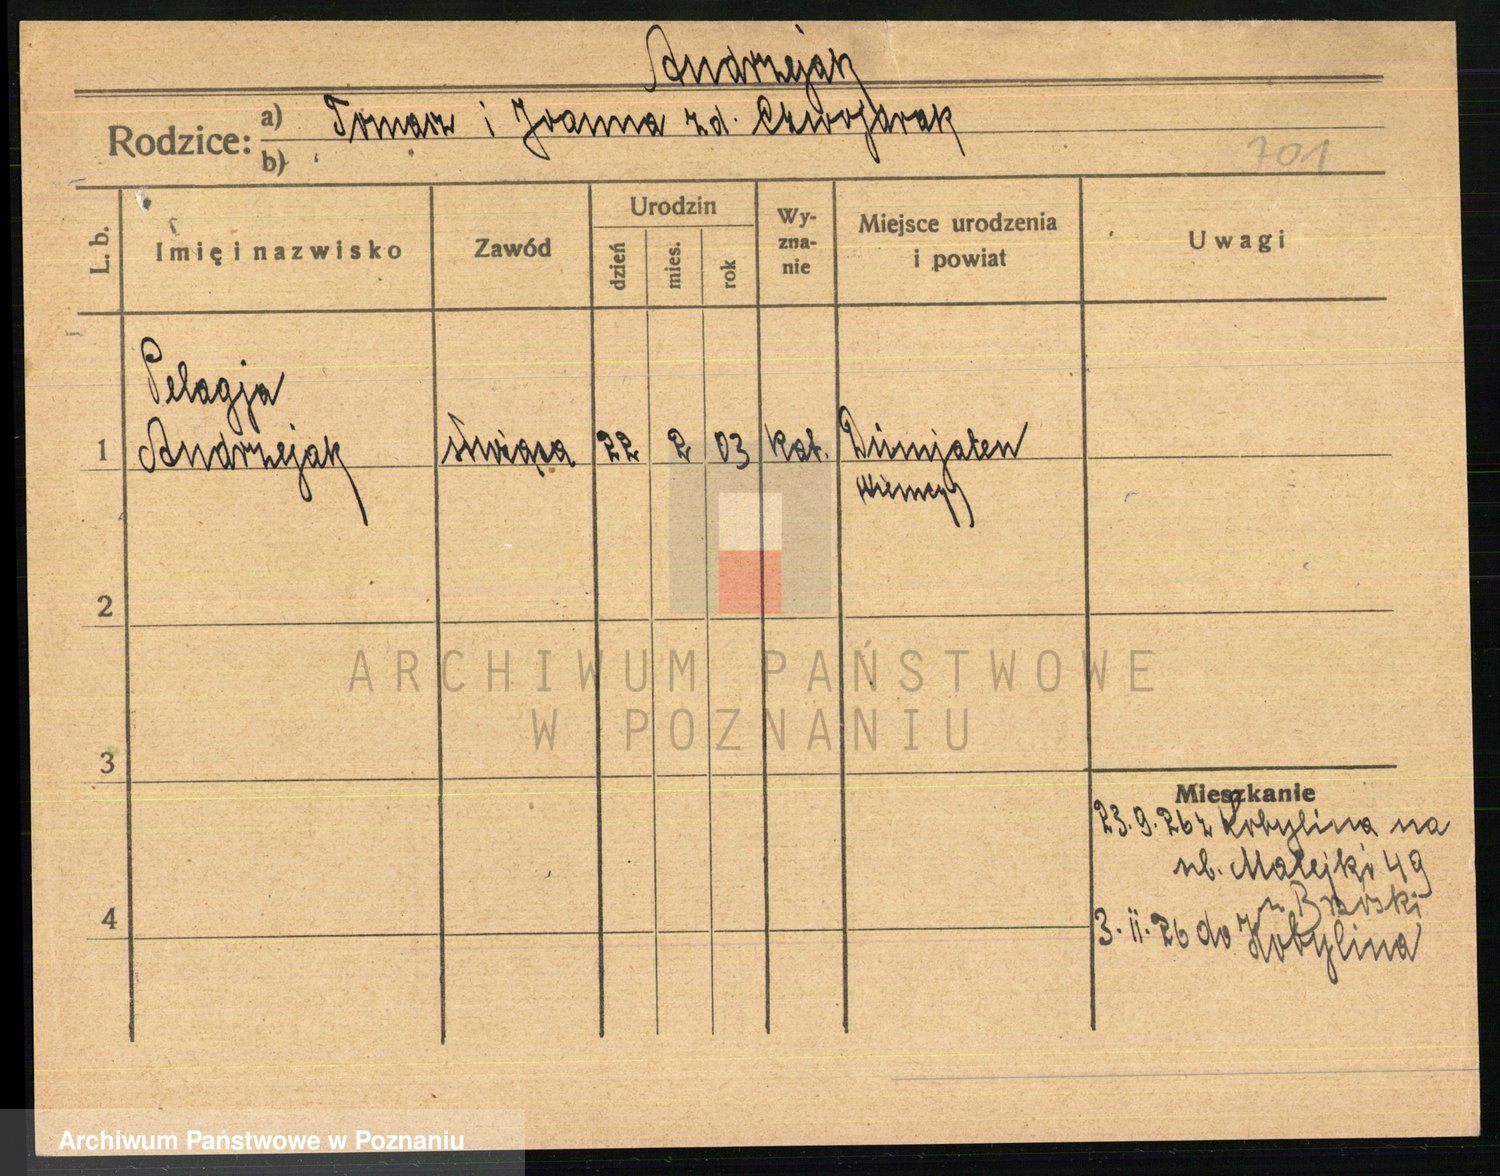 Andrzejak
Rodzice: a) Tomasz i Joanna zd. Czwojdrak
b)
701
L. b.
Imię i nazwisko
Zawód
Urodzin
dzień
mies.
rok
Wy-
zna-
nie
Miejsce urodzenia
i powiat
Uwagi
Pelagja
1 Andrzejak służąca 22 2 03 kat.
Niemcy
2
ARCHIWUM PAŃSTWOWE
W POZNANIU
3
Mieszkanie
23.9.26 z Kobylina na
ul. Matejki 49
Brzoski
4
3.11.26 do Kobylina
Archiwum Państwowe w Poznaniu